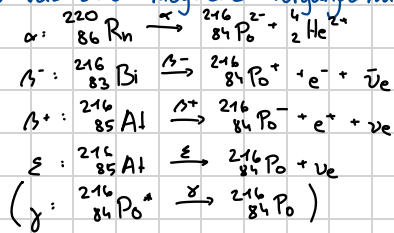 α: ²²⁰₈₆Rn →(α) ²¹⁶₈₄Po²⁻ + ⁴₂He²⁺
β⁻: ²¹⁶₈₃Bi →(β⁻) ²¹⁶₈₄Po⁺ + e⁻ + ν̄e
β⁺: ²¹⁶₈₅At →(β⁺) ²¹⁶₈₄Po⁻ + e⁺ + νe
ε: ²¹⁶₈₅At →(ε) ²¹⁶₈₄Po + νe
(γ: ²¹⁶₈₄Po* →(γ) ²¹⁶₈₄Po)